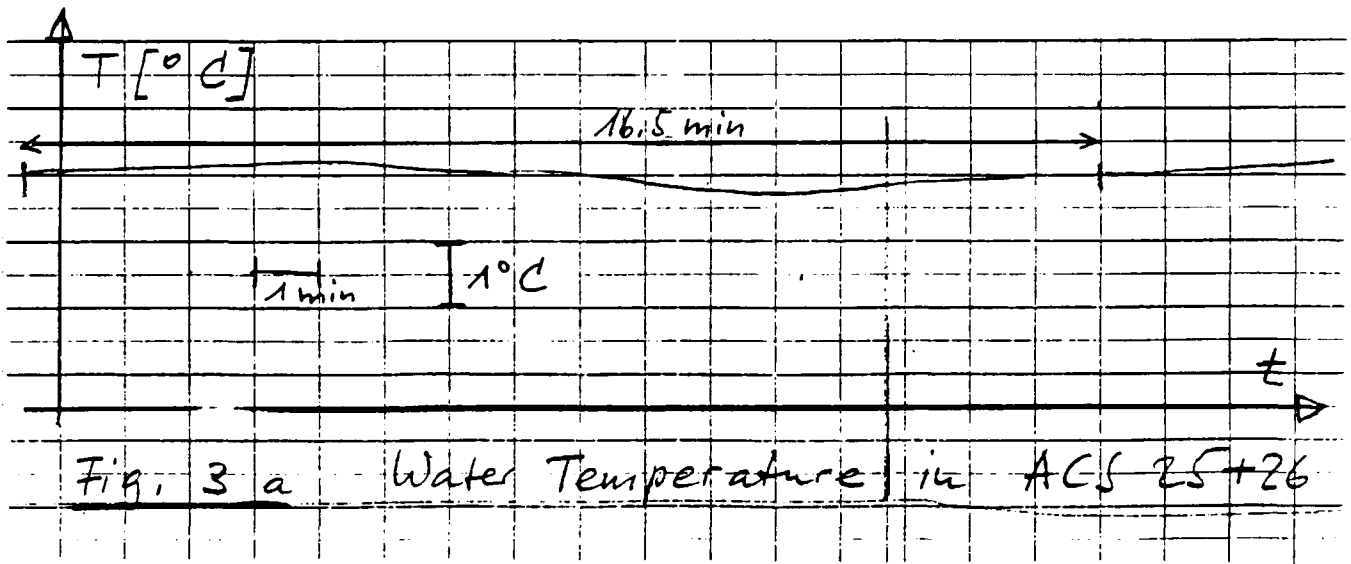 T [° C]
16.5 min
1 min
1° C
t
Fig. 3 a Water Temperature in ACS 25+26